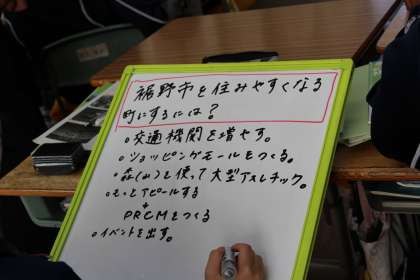 裾野市を住みやすくなる
町にするには？
○交通機関を増やす。
○ショッピングモールをつくる。
○森(山)を使って大型アスレチック。
○もっとアピールする
+
PRCMをつくる
○イベントを出す。